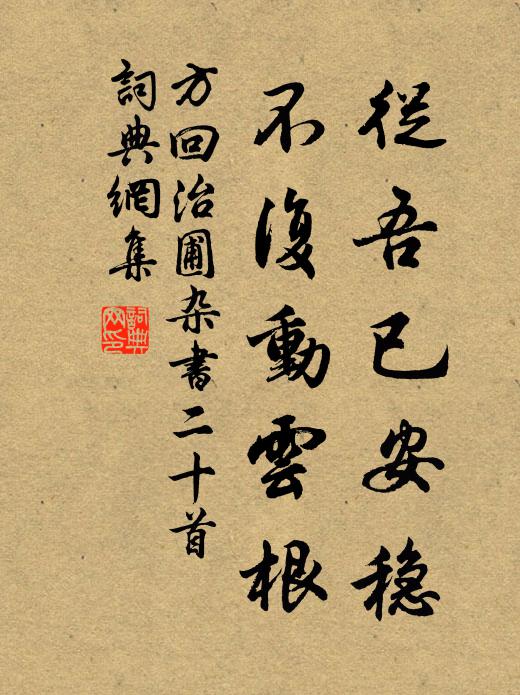 從吾已安穏
不復動雲根
方回治圃杂書二十首
詞典網集
詞典网印